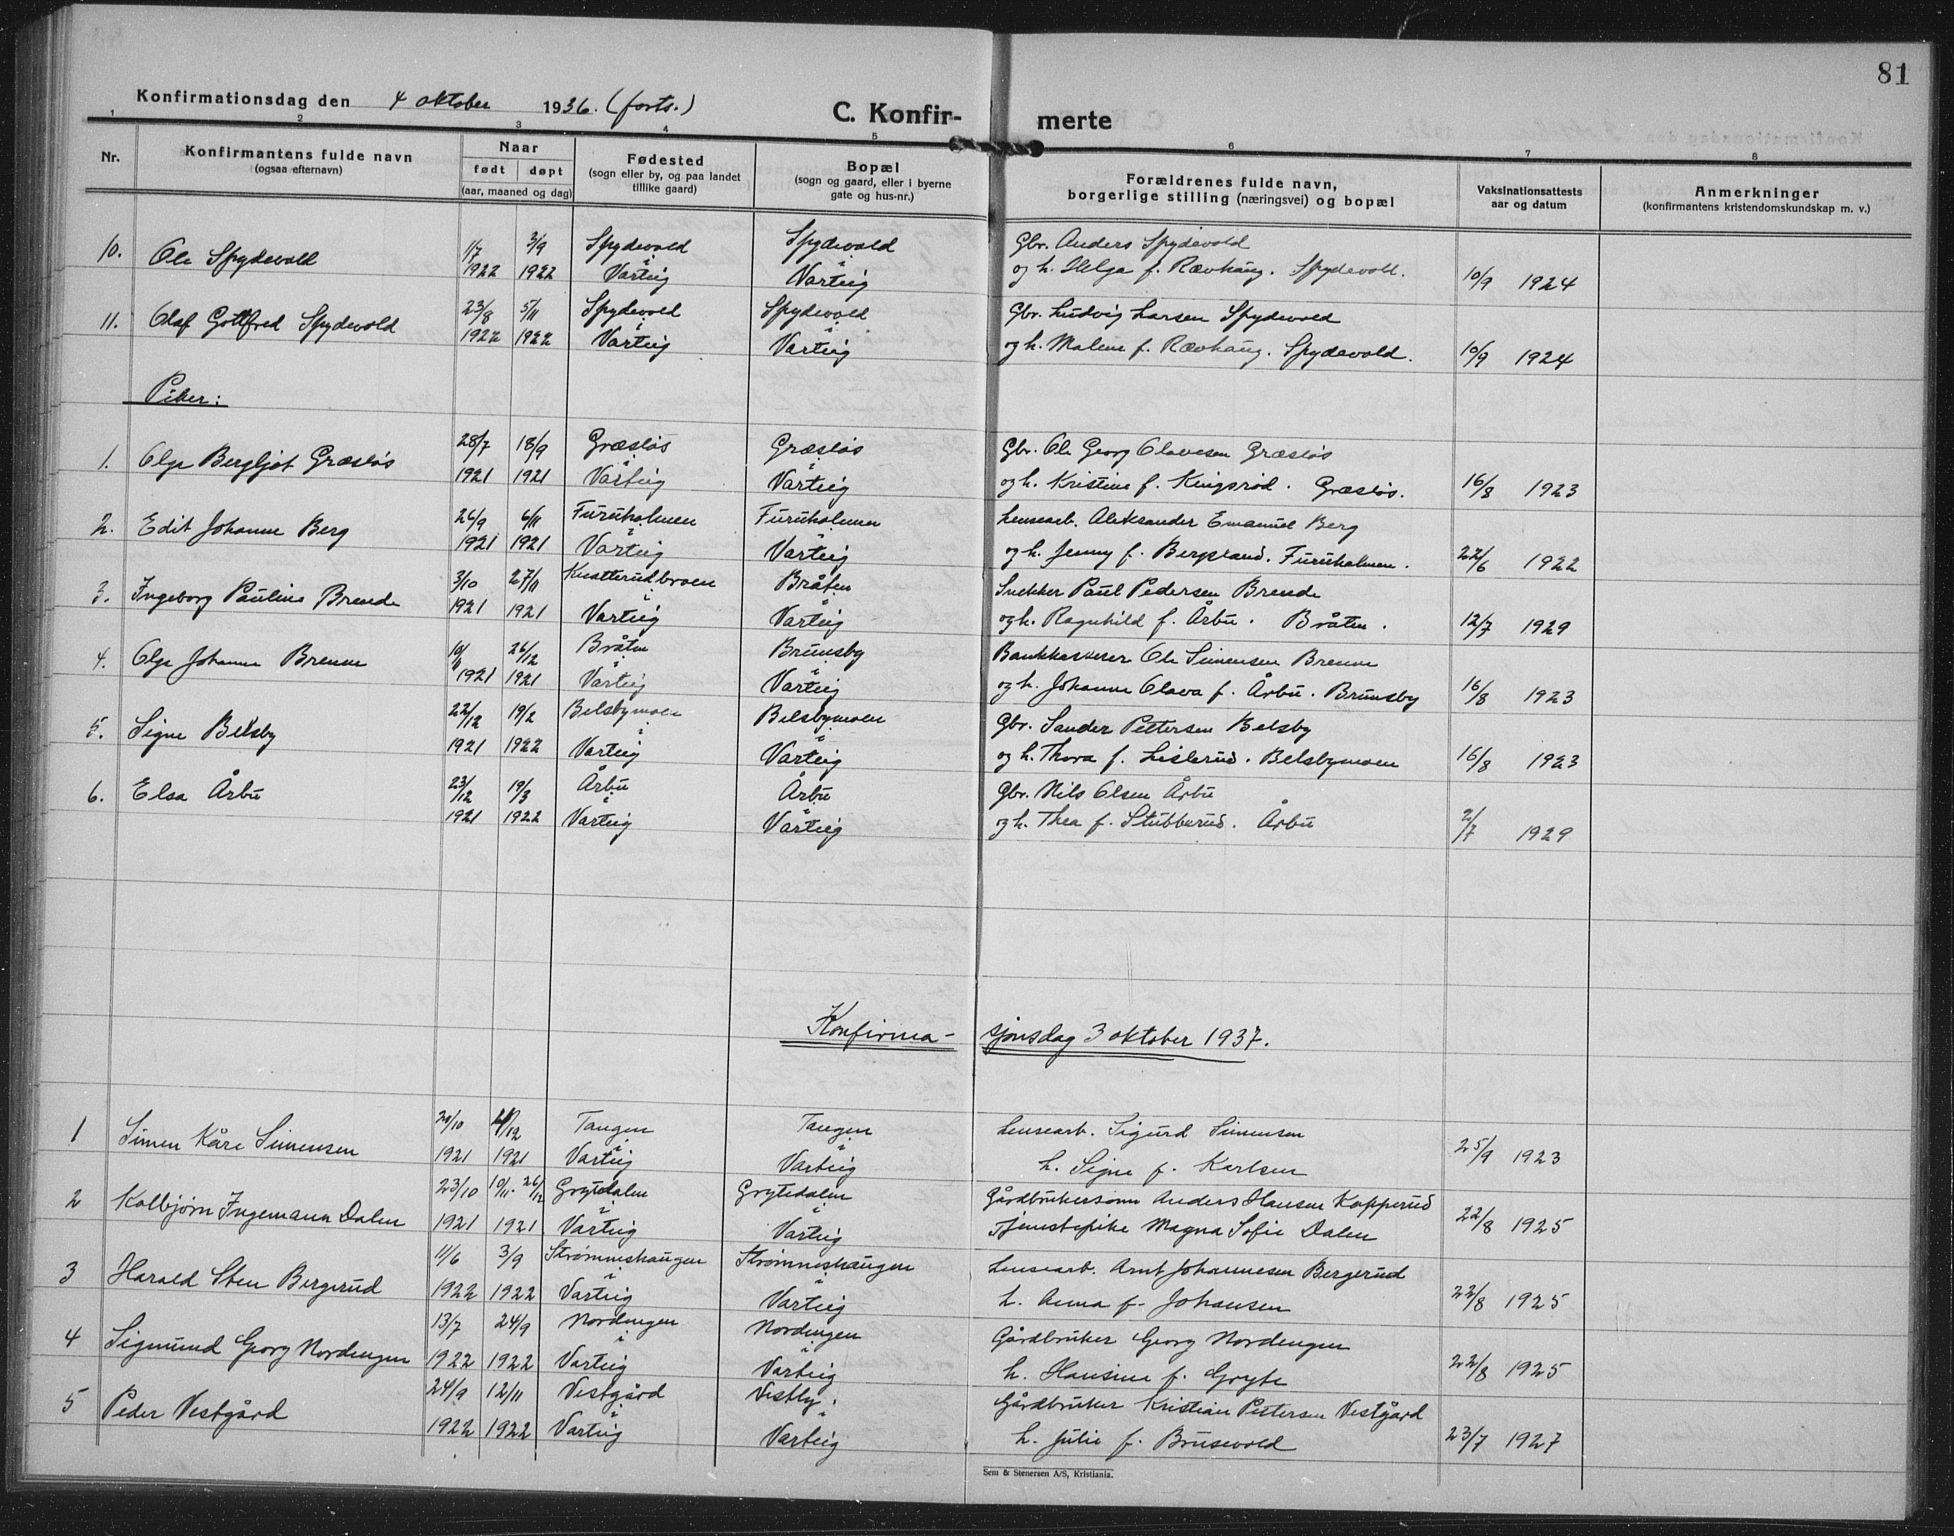 81
Konfirmationsdag den 4 oktober 1936. (forts.)
C. Konfir- merte
1 2 3 4 5 6 7 8
Nr.
Konfirmantens fulde navn
(ogsaa efternavn)
Naar
født døpt
(aar, maaned og dag)
Fødested
(sogn eller by, og paa landet
tillike gaard)
Bopæl
(sogn og gaard, eller i byerne
gate og hus-nr.)
Forældrenes fulde navn,
borgerlige stilling (næringsvei) og bopæl
Vaksinationsattests
aar og datum
Anmerkninger
(konfirmantens kristendomskundskap m. v.)
10. Ole Spydevold 1/7 3/9 Spydevold Spydevold Gbr. Anders Spydevold
1922 1922 Varteig Varteig og h. Helga f. Rævhaug. Spydevold. 10/9 1924
11. Olaf Gottfred Spydevold 23/8 5/11 Spydevold Spydevold Gbr. Ludvig Larsen Spydevold
1922 1922 Varteig Varteig og h. Malene f. Rævhaug. Spydevold. 10/9 1924
Piker:
1. Olga Bergljot Græsløs 28/7 18/9 Græsløs Græsløs Gbr. Ole Georg Olavesen Græsløs
1921 1921 Varteig Varteig og h. Kristine f. Kingsrød. Græsløs. 16/8 1923
2. Edit Johanne Berg 26/9 6/11 Furuholmen Furuholmen Lensearb. Aleksander Emanuel Berg
1921 1921 Varteig Varteig og h. Jenny f. Bergsland. Furuholmen. 22/6 1922
3. Ingeborg Pauline Brende 3/10 27/11 Knatterudbroen Bråten Snekker Paul Pedersen Brende
1921 1921 Varteig Varteig og h. Ragnhild f. Årbu. Bråten. 12/7 1929
4. Olga Johanne Brenne 10/11 26/12 Bråten Brunsby Bankkaserer Ole Simensen Brenne
1921 1921 Varteig Varteig og h. Johanne Olava f. Årbu. Brunsby 16/8 1923
5. Signe Belsby 22/12 19/2 Belsbymoen Belsbymoen Gbr. Sander Pettersen Belsby
1921 1922 Varteig Varteig og h. Thora f. Lislerud. Belsbymoen 16/8 1923
6. Elsa Årbu 23/12 19/3 Årbu Årbu Gbr. Nils Olsen Årbu
1921 1922 Varteig Varteig og h. Thea f. Stubberud. Årbu 2/7 1929
Konfirma- sjonsdag 3 oktober 1937.
1 Simen Kåre Simensen 20/10 /12 Tangen Tangen Lensearb. Sigurd Simensen
1921 1921 Varteig Varteig h. Signe f. Karlsen 25/9 1923
2 Kolbjørn Ingemann Dalen 23/10 10/11. 26/12 Grytedalen Grytedalen Gårdbrukersønn Anders Hansen Kopperud
1921 1921 Varteig Varteig Tjenestepike Magna Sofie Dalen 22/8 1925
3 Harald Sten Bergerud 11/6 3/9 Strømneshaugen Strømneshaugen Lensearb. Arnt Johannesen Bergerud
1922 1922 Varteig Varteig h. Anna f. Johansen 22/8 1925
4 Sigmund Georg Nordengen 13/7 24/9 Nordengen Nordengen Gårdbruker Georg Nordengen
1922 1922 Varteig Varteig h. Hansine f. Gryte 22/8 1925
5 Peder Vestgård 24/9 12/11 Vestgård Vestby. Gårdbruker Kristian Pettersen Vestgård
1922 1922 Varteig Varteig h. Julie f. Brusevold 23/7 1927
Sem & Stenersen A/S, Kristiania.